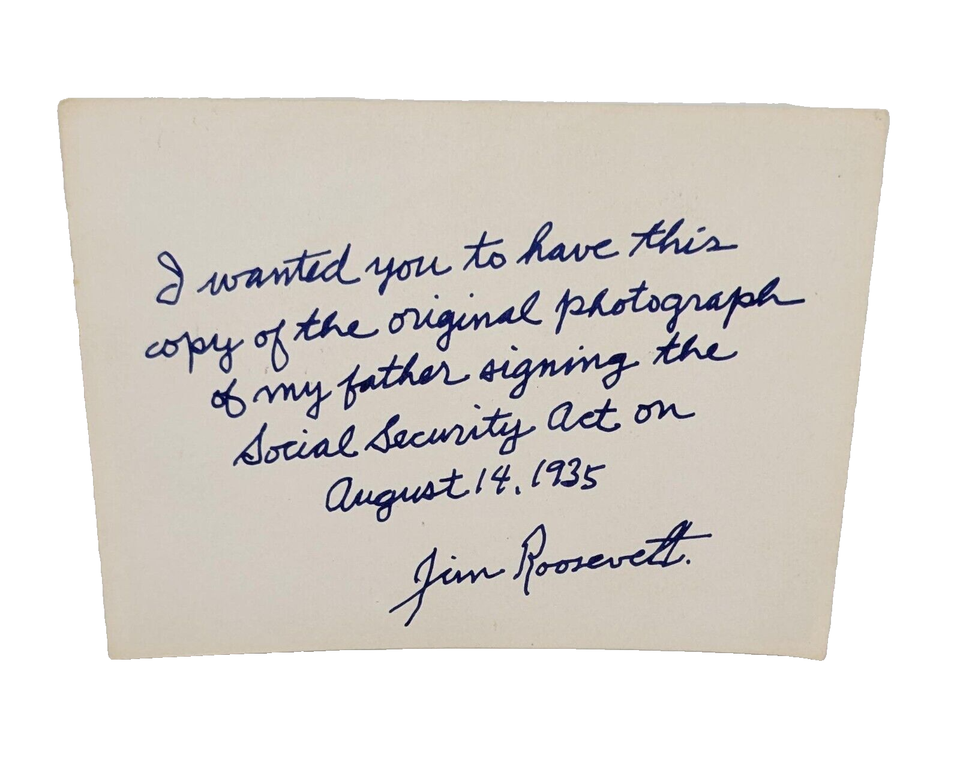 I wanted you to have this
copy of the original photograph
of my father signing the
Social Security Act on
August 14, 1935
Jim Roosevelt.